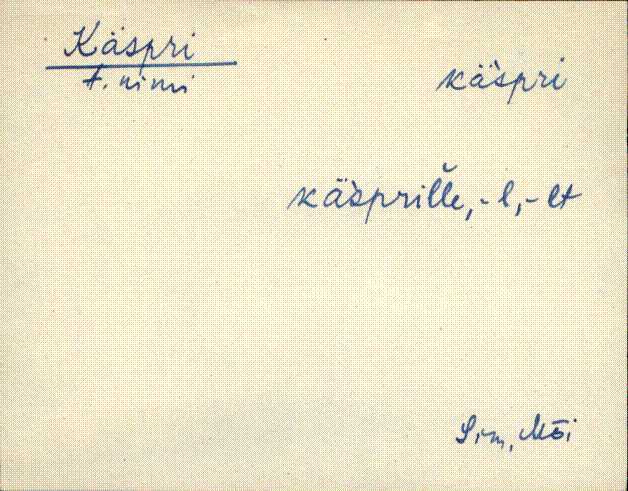 Käspri
t. nimi
kä̀spri
kä̀sprille, -l, -lt
Sim, Mõi